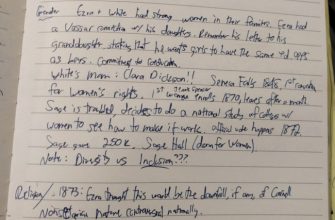 Gender Ezra + White had strong women in their families. Ezra had
a Vassar connection w/ his daughters. Remember his letter to his
granddaughter stating that he wants girls to have the same ed opps
as boys. Commitment to coeducation
White's mom: Clara Dickson!! Seneca Falls 1848, 1st convention
for women's rights. 1st woman enrolls 1870, leaves after a month
Sage is troubled, decides to do a national study of colleges w/
women to see how to make it work. Official vote happens 1872.
Sage gave 250K. Sage Hall (dorm for women)
Note: Diversity vs Inclusion???
Religion/ 1873: Ezra thought this would be the downfall, if any, of Cornell
Note: nature controversial nationally.